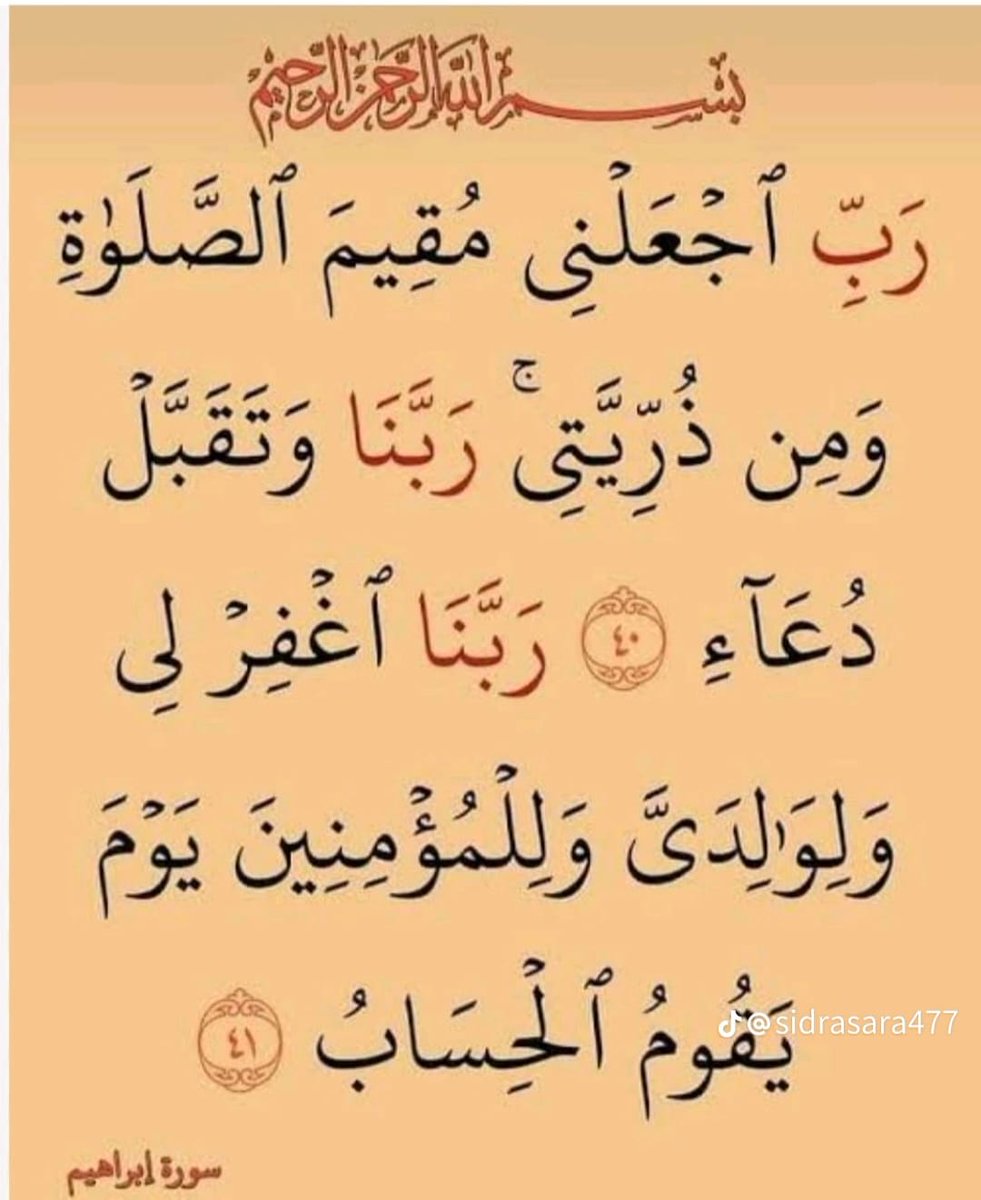 بسم الله الرحمن الرحيم
رَبِّ ٱجْعَلْنِى مُقِيمَ ٱلصَّلَوٰةِ
وَمِن ذُرِّيَّتِى ۚ رَبَّنَا وَتَقَبَّلْ
دُعَآءِ ٤٠ رَبَّنَا ٱغْفِرْ لِى
وَلِوَٰلِدَىَّ وَلِلْمُؤْمِنِينَ يَوْمَ
يَقُومُ ٱلْحِسَابُ ٤١
@sidrasara477
سورة إبراهيم